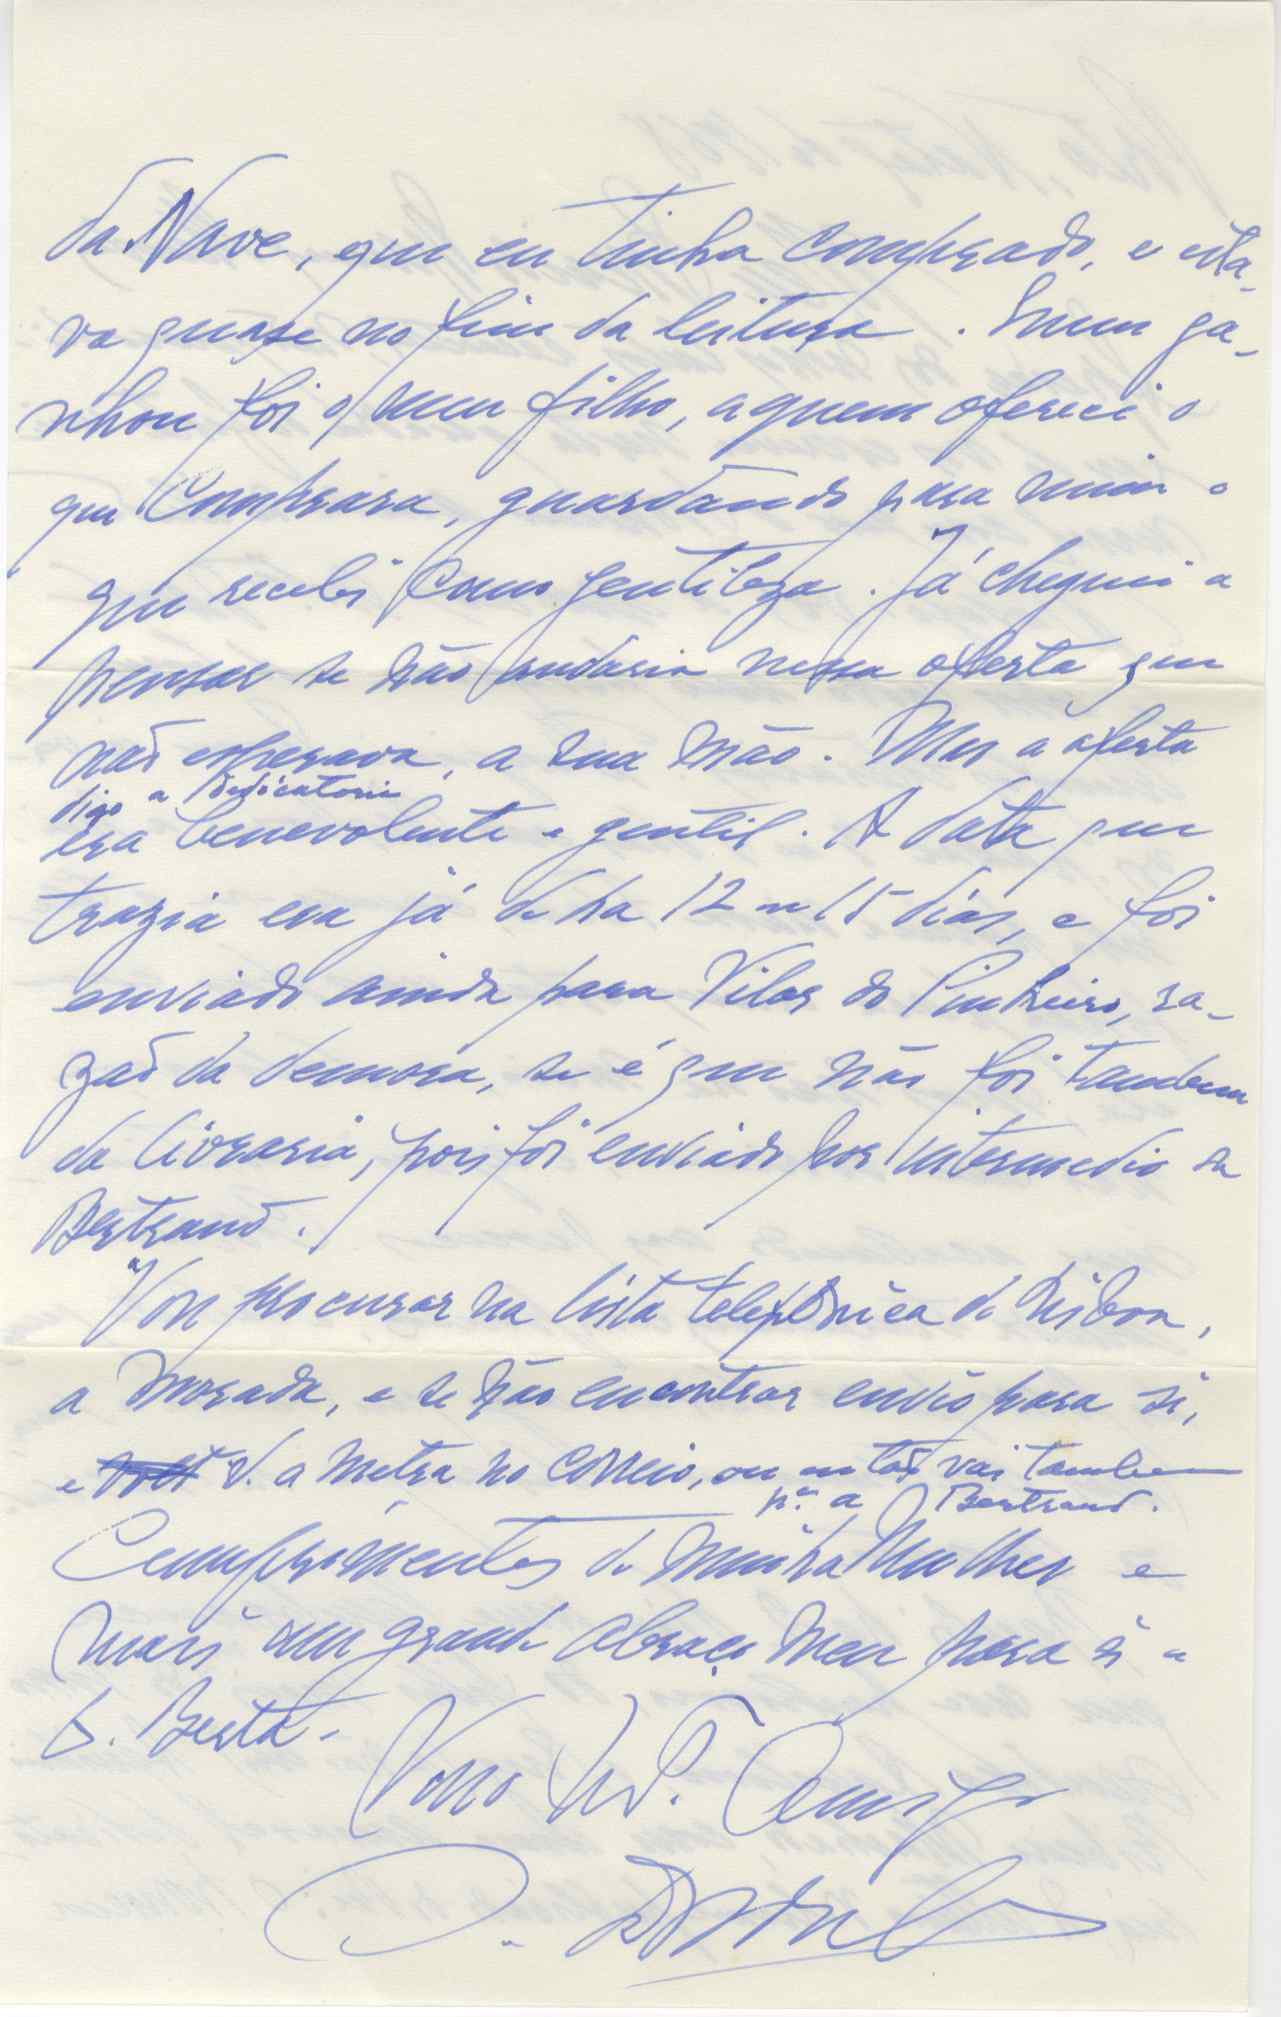 da Nave, que eu tinha comprado, e esta-
va quase no fim da leitura. Quem ga-
nhou foi o meu filho, a quem ofereci o
que comprara, guardando para mim o
que recebi como gentileza. Já cheguei a
pensar se não andaria nessa oferta que
não esperava, a sua mão. Mas a oferta
digo a dedicatoria
era benevolente e gentil. A data que
trazia era já de ha 12 ou 15 dias, e foi
enviado ainda para Vilar do Pinheiro, ra-
zão da demora, se é que não foi tambem
da livraria, pois foi enviado por intermedio da
Bertrand.
Vou procurar na lista telefónica de Lisboa,
a morada, e se não encontrar envio para si,
e V. a metra no correio, ou então vai tambem
pª a Bertrand.
Cumprimentos de minha Mulher e
mais um grande abraço meu para si e
D. Berta.
Vosso Mt. Amigo